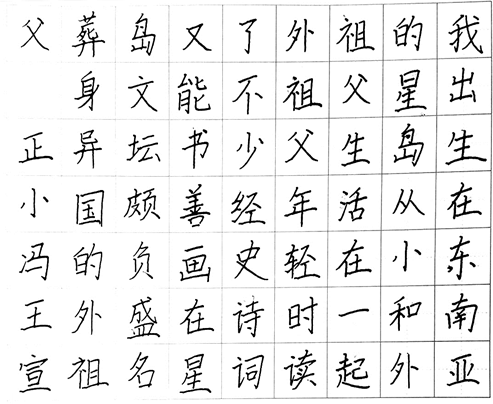 我出生在东南亚
的星岛从小和外
祖父生活在一起
外祖父年轻时读
了不少经史诗词
又能书善画在星
岛文坛颇负盛名
葬身异国的外祖
父 正小冯王宣